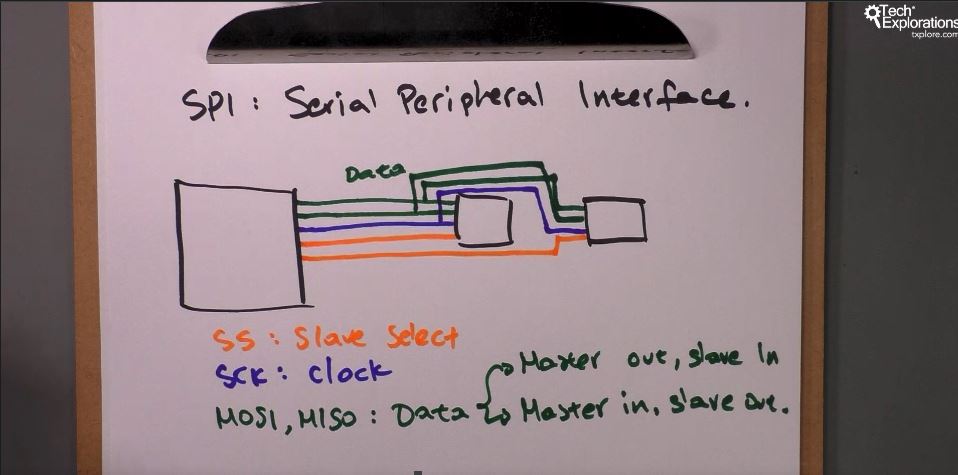 Tech
Explorations
txplore.com
SPI : Serial Peripheral Interface.
Data
SS : Slave Select
SCK : Clock
Master out, slave In
MOSI, MISO : Data
Master in, slave out.